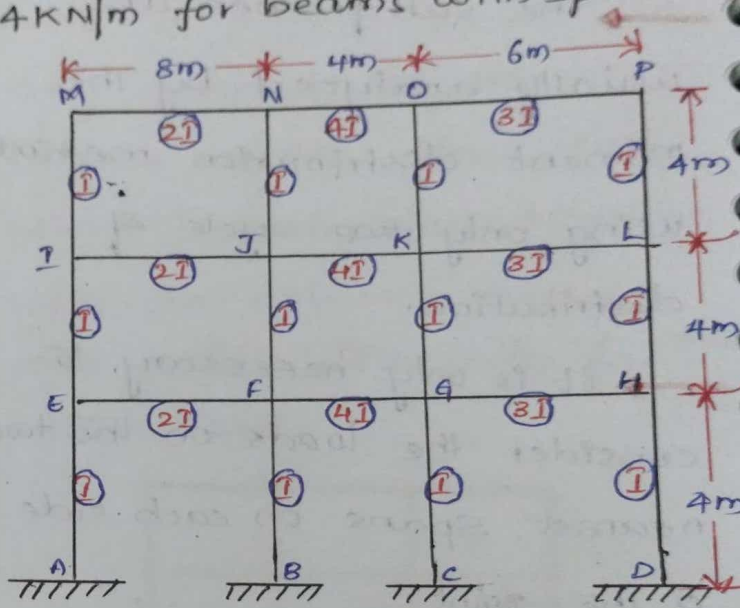 4KN/m for beams
8m 4m 6m
M N O P
2I 4I 3I
I I I I 4m
I J K L
2I 4I 3I
I I I I 4m
E F G H
2I 4I 3I
I I I I 4m
A B C D